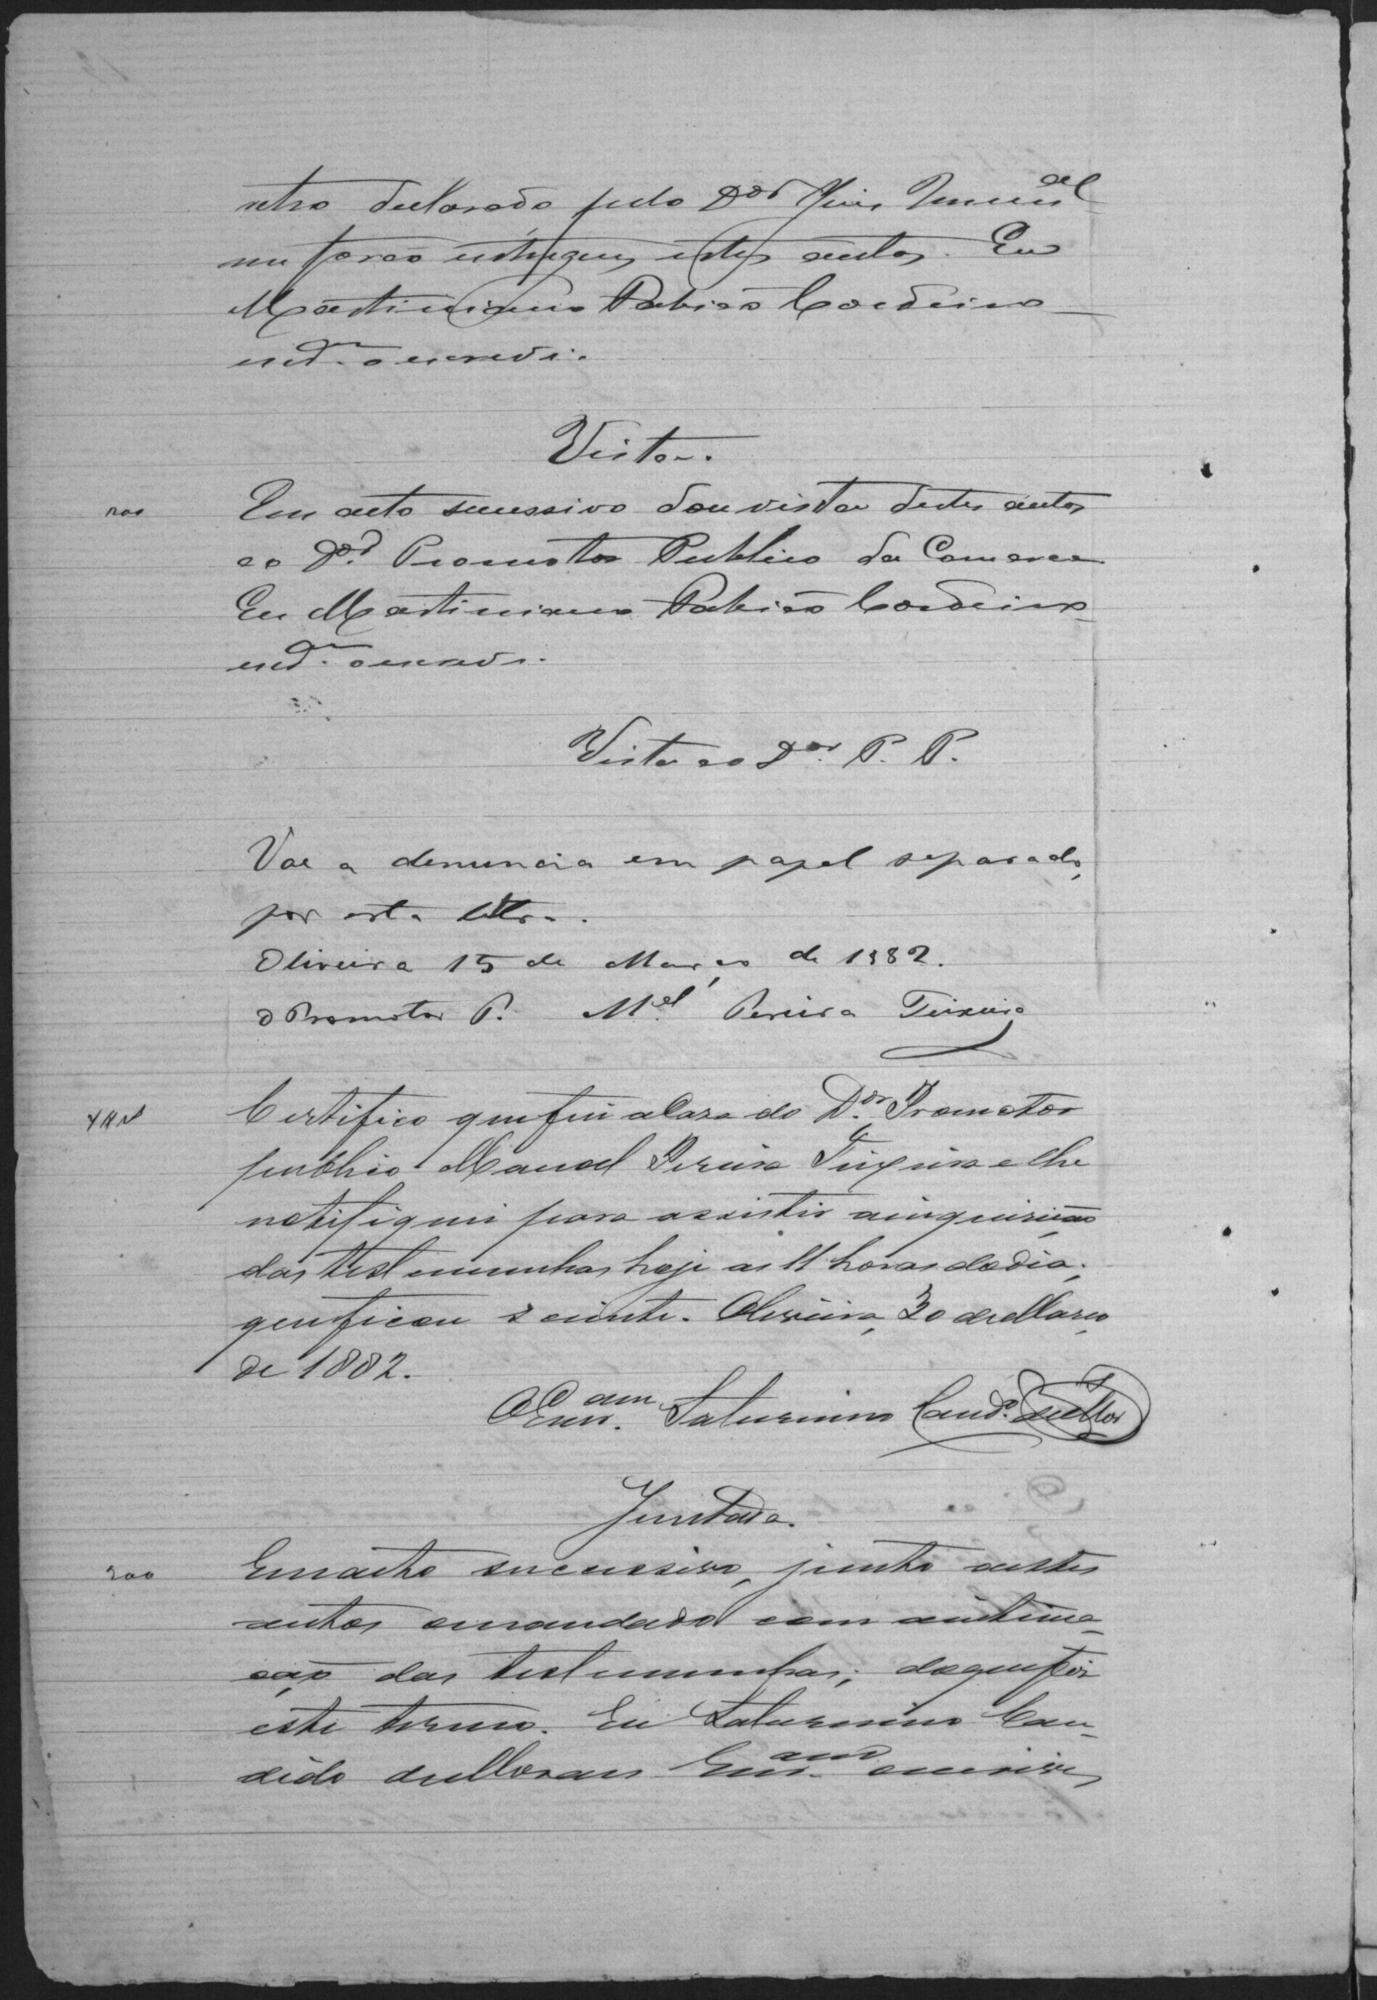 retro declarado pelo Dor Juis Municipal
me forão entregues estes autos. Eu
Martiniano Cordeiro
escr.am o escrevi.
Vista.
200
Em acto sucessivo dou vista destes autos
ao Dor. Promotor Publico da Comarca
Eu Martiniano Cordeiro
o escrevi.
Vista ao Dor. P. P.
Vae a denuncia em papel separado,
por esta letra.
Oliveira 15 de Março de 1882.
O Promotor P. Mel. Pereira Teixeira
Certifico que fui a Caza do Dor. Promotor
publico Manoel Pereira Teixeira e lhe
notifiquei para assistir a inquirição
das testemunhas hoje as 11 horas do dia;
que ficou sciente. Oliveira, 30 de Março
de 1882.
O Escr.am Saturnino Cand.o de Mor.
Juntada.
200
Em acto successivo, junto a estes
autos o mandado com a intima-
ção das testemunhas; do que fiz
este termo. Eu Saturnino Can-
dido de Moraes Escr.am o escrevi